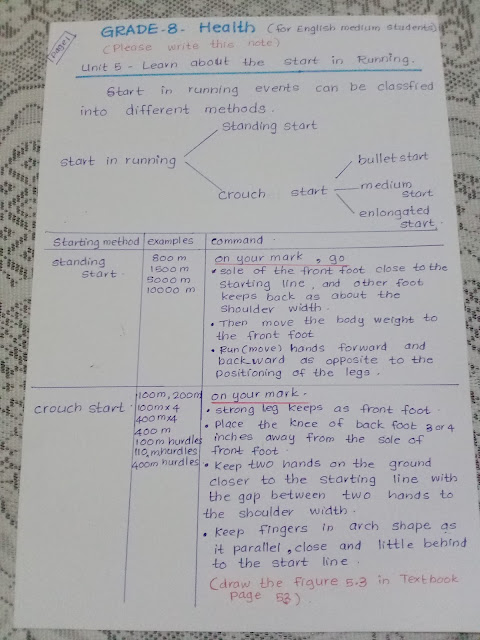 page1
GRADE-8- Health (for English medium students)
(Please write this note)
Unit 5 - Learn about the start in Running.
Start in running events can be classfied
into different methods.
Standing start
start in running
crouch start
bullet start
medium start
enlongated start.
Starting method examples command.
standing start.
800 m
1500 m
5000 m
10000 m
on your mark, go
• sole of the front foot close to the
starting line, and other foot
keeps back as about the
shoulder width.
• Then move the body weight to
the front foot
• Run (move) hands forward and
back-ward as opposite to the
positioning of the legs.
crouch start.
100m, 200m
100m×4
400m×4
400 m
100m hurdles
110mhurdles
400m hurdles
on your mark.
• strong leg keeps as front foot.
• Place the knee of back foot 3 or 4
inches away from the sole of
front foot.
• Keep two hands on the ground
closer to the starting line with
the gap between two hands to
the shoulder width.
• Keep fingers in arch shape as
it parallel, close and little behind
to the start line.
(draw the figure 5.3 in Textbook
page 53).